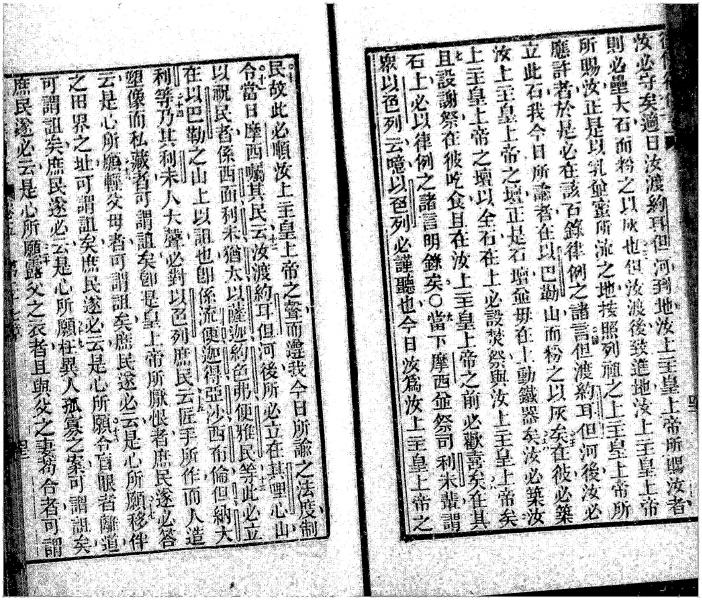 汝必守矣適日汝渡約耳但河到地汝上主皇上帝所賜汝者
則必壘大石而粉之以灰也但汝渡後致進地汝上主皇上帝
所賜汝正是以乳並蜜所流之地按照列祖之上主皇上帝所
應許者於是必在該石錄律例之諸言但渡約耳但河後汝必
立此石我今日所諭者在以巴勒山而粉之以灰矣在彼必築
汝上主皇上帝之壇正是石壇並毋在上動鐵器矣汝必築汝
上主皇上帝之壇以全石在上必設焚祭與汝上主皇上帝矣
且設謝祭在彼吃食且在汝上主皇上帝之前必歡喜矣在其
石上必以律例之諸言明錄矣○當下摩西並祭司利未輩謂
眾以色列云噫以色列必謹聽也今日汝為汝上主皇上帝之
民故此必順汝上主皇上帝之聲而遵我今日所諭之法度制
令當日摩西囑其民云汝渡約耳但河後所必立在其哩心山
以祝民者係西面利未猶大以薩迦約色弗便雅民等此必立
在以巴勒之山上以詛也即係流便迦得亞沙西布倫但納大
利等乃其利未人大聲必對以色列庶民云匠手所作而人造
塑像而私藏者可謂詛矣即是皇上帝所厭恨者庶民遂必答
云是心所願輕父母者可謂詛矣庶民遂必云是心所願移伴
之田界之址可謂詛矣庶民遂必云是心所願令盲眼者離道
可謂詛矣庶民遂必云是心所願枉異人孤寡之案可謂詛矣
庶民遂必云是心所願露父之衣者且與父之妻苟合者可謂